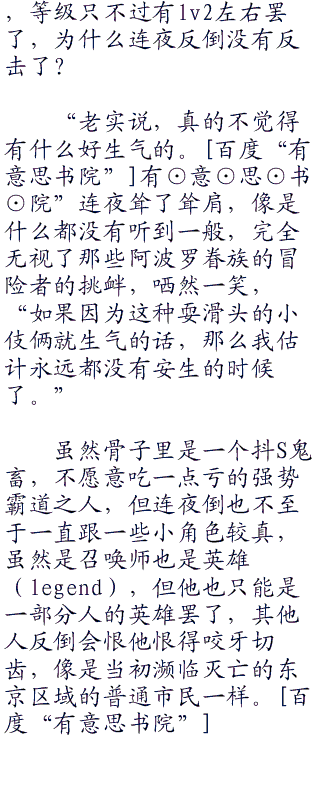 ，等级只不过有lv2左右罢
了，为什么连夜反倒没有反
击了？
“老实说，真的不觉得
有什么好生气的。[百度“有
意思书院”]有⊙意⊙思⊙书
⊙院”连夜耸了耸肩，像是
什么都没有听到一般，完全
无视了那些阿波罗眷族的冒
险者的挑衅，哂然一笑，
“如果因为这种耍滑头的小
伎俩就生气的话，那么我估
计永远都没有安生的时候
了。”
虽然骨子里是一个抖S鬼
畜，不愿意吃一点亏的强势
霸道之人，但连夜倒也不至
于一直跟一些小角色较真，
虽然是召唤师也是英雄
（legend），但他也只能是
一部分人的英雄罢了，其他
人反倒会恨他恨得咬牙切
齿，像是当初濒临灭亡的东
京区域的普通市民一样。[百
度“有意思书院”]